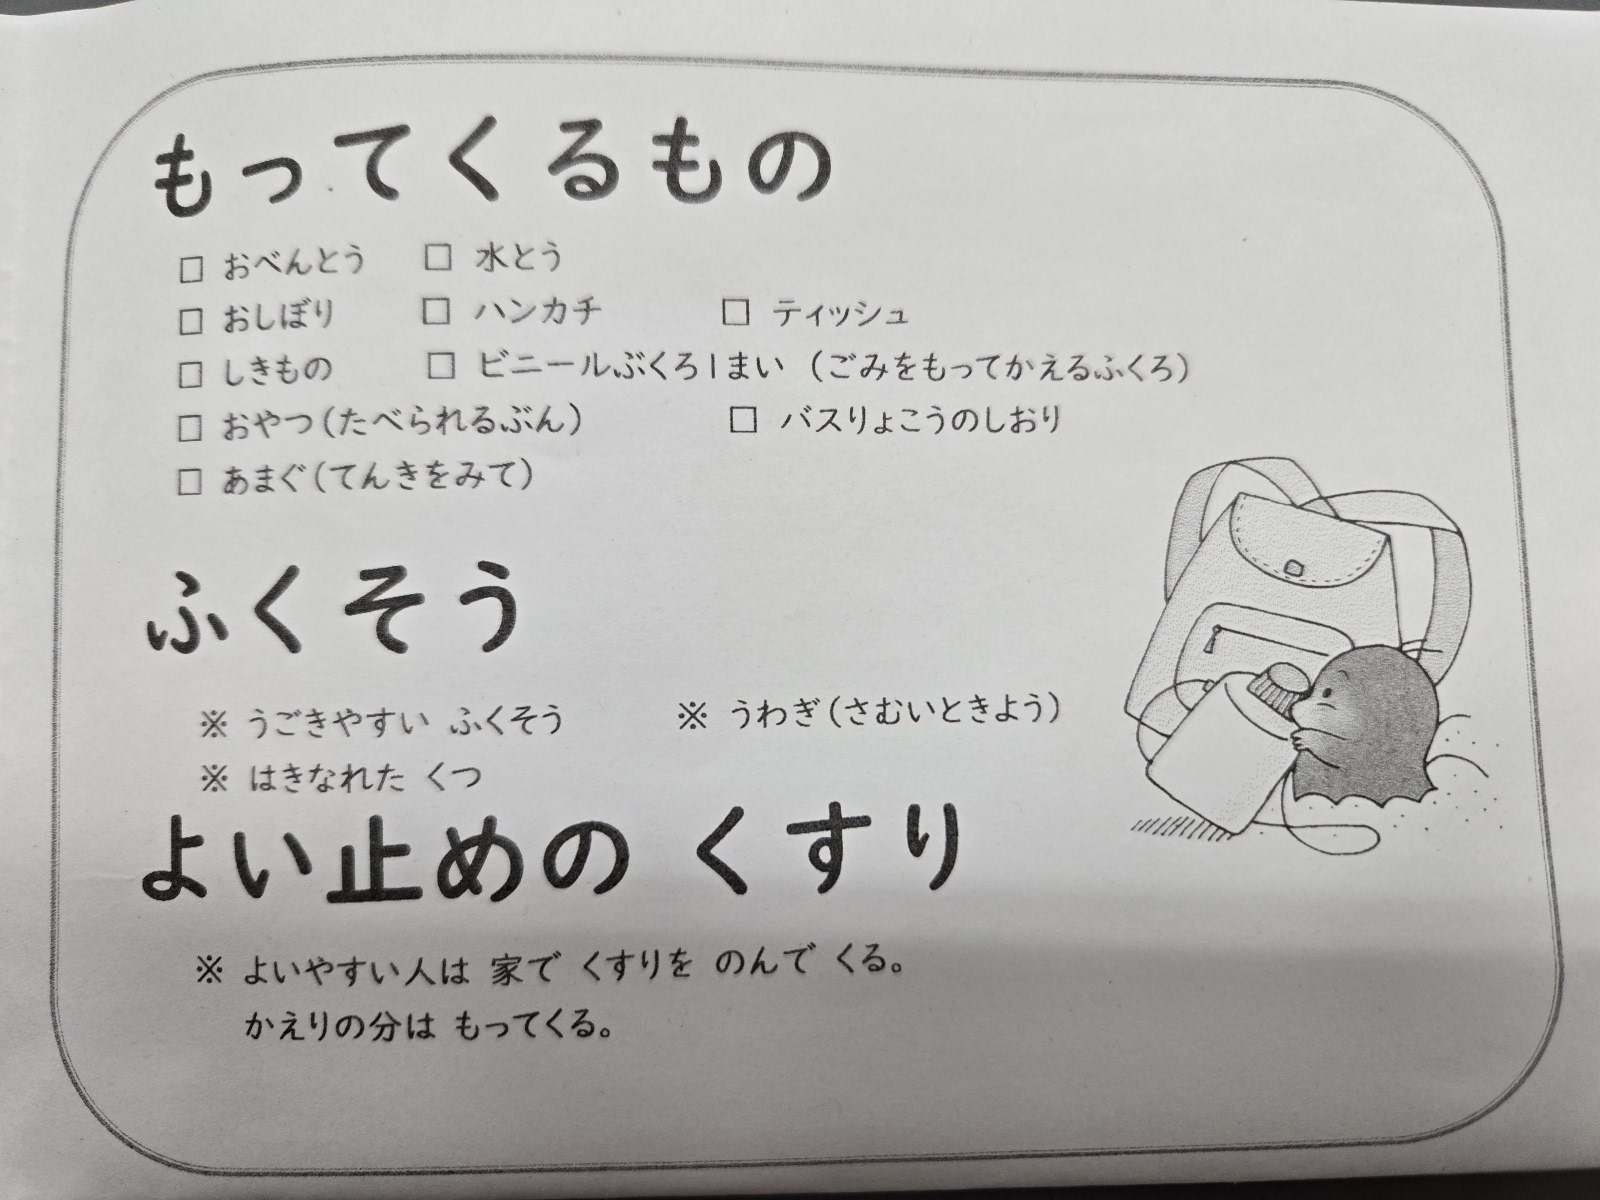 もってくるもの
□ おべんとう □ 水とう
□ おしぼり □ ハンカチ □ ティッシュ
□ しきもの □ ビニールぶくろ1まい (ごみをもってかえるふくろ)
□ おやつ(たべられるぶん) □ バスりょこうのしおり
□ あまぐ(てんきをみて)
ふくそう
※ うごきやすい ふくそう ※ うわぎ(さむいときよう)
※ はきなれた くつ
よい止めの くすり
※ よいやすい人は 家で くすりを のんで くる。
かえりの分は もってくる。